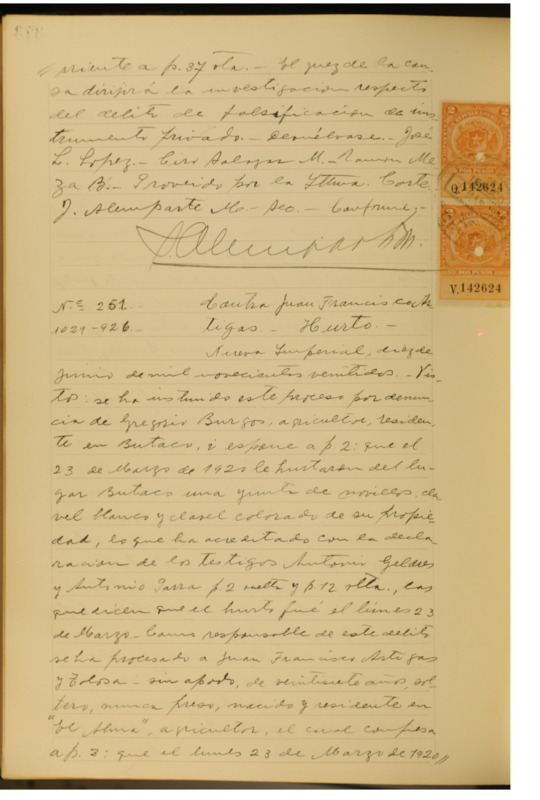 rriente a p. 37 vta. - El juez de la cau-
sa dirijirá la investigacion respecto
del delito de falsificacion de ins-
trumento privado. - Devuélvase. - José
L. Lopez. - Ciro Salazar M. - Ramon Me-
za B. - Proveido por la Iltma. Corte.
J. Alemparte M. - Sec. - Conforme; -
2
DOS PESOS
Q.142624
DOS PESOS
V.142624
N.º 251. Contra Juan Francisco Ar
1021-926. tigas. - Hurto. -
Nueva Imperial, diez de
Junio de mil novecientos veintidos. - Vis-
tos: se ha instruido este proceso por denun-
cia de Gregorio Burgos, agricultor, residen-
te en Butaco, i espone a p 2: que el
23 de Marzo de 1920 le hurtaron del lu-
gar Butaco una yunta de novillos, cla
vel blanco y clavel colorado de su propie-
dad, lo que ha acreditado con la decla-
racion de los testigos Antonio Geldres
y Antonio Parra p. 2 vuelta y p 12 vlta., los
que dicen que el hurto fué el lúnes 23
de Marzo. - Como responsable de este delito
se ha procesado a Juan Francisco Artigas
y Tolosa - sin apodo, de veintisiete años, sol-
tero, nunca preso, nacido y residente en
"El Alma", agricultor, el cual confiesa
a p. 3: que el lunes 23 de Marzo de 1920